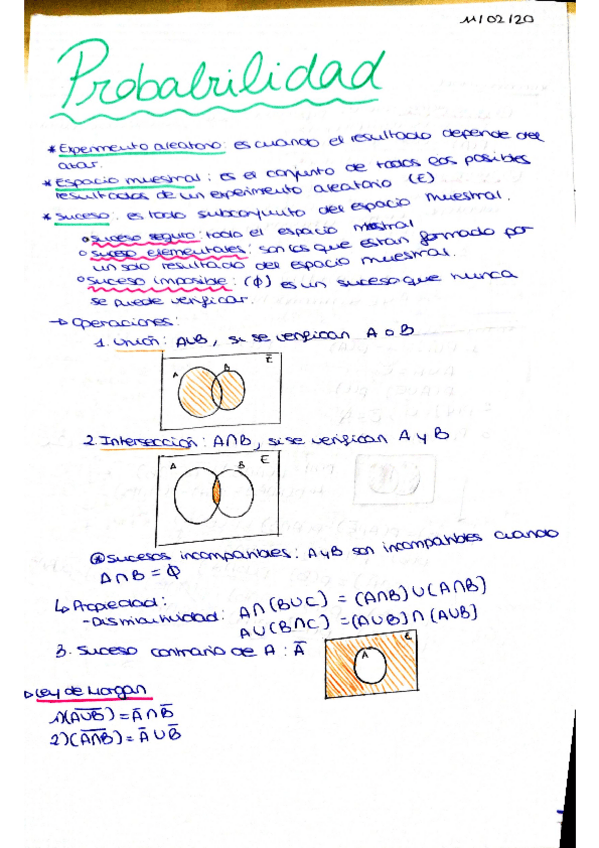 11/02/20
Probabilidad
* Experimento aleatorio: es cuando el resultado depende del
azar.
* Espacio muestral: es el conjunto de todos los posibles
resultados de un experimento aleatorio (E)
* Suceso: es todo subconjunto del espacio muestral.
o Suceso seguro: todo el espacio mostral
o Suceso elementales: son los que estan formado por
un solo resultado del espacio muestral.
o Suceso imposible: (ϕ) es un suceso que nunca
se puede verificar.
→ Operaciones:
1. Unión: A∪B, si se verifican A o B
A B E
2. Intersección: A∩B, si se verifican A y B
A B E
* Sucesos incompatibles: A y B son incompatibles cuando
A∩B = ϕ
↳ Propiedad:
- Distributividad: A∩(B∪C) = (A∩B)∪(A∩B)
A∪(B∩C) = (A∪B)∩(A∪B)
3. Suceso contrario de A: A̅
A E
▷ Ley de Morgan
1) (A̅∪̅B̅) = A̅ ∩ B̅
2) (A̅∩̅B̅) = A̅ ∪ B̅